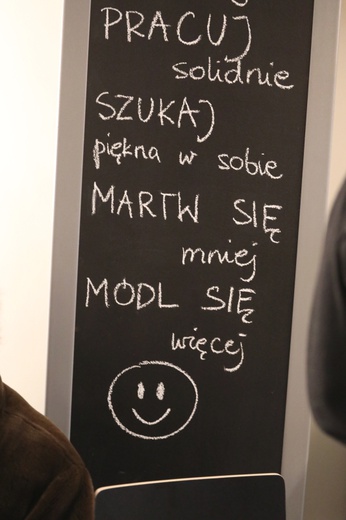 PRACUJ
solidnie
SZUKAJ
piękna w sobie
MARTW SIĘ
mniej
MÓDL SIĘ
więcej